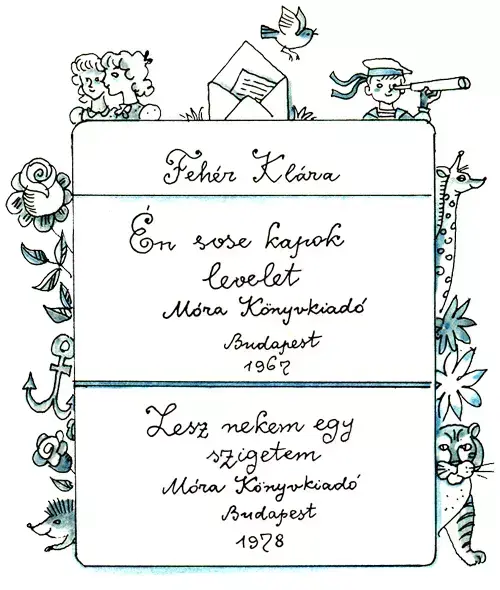 Fehér Klára
Én sose kapok
levelet
Móra Könyvkiadó
Budapest
1967
Lesz nekem egy
szigetem
Móra Könyvkiadó
Budapest
1978